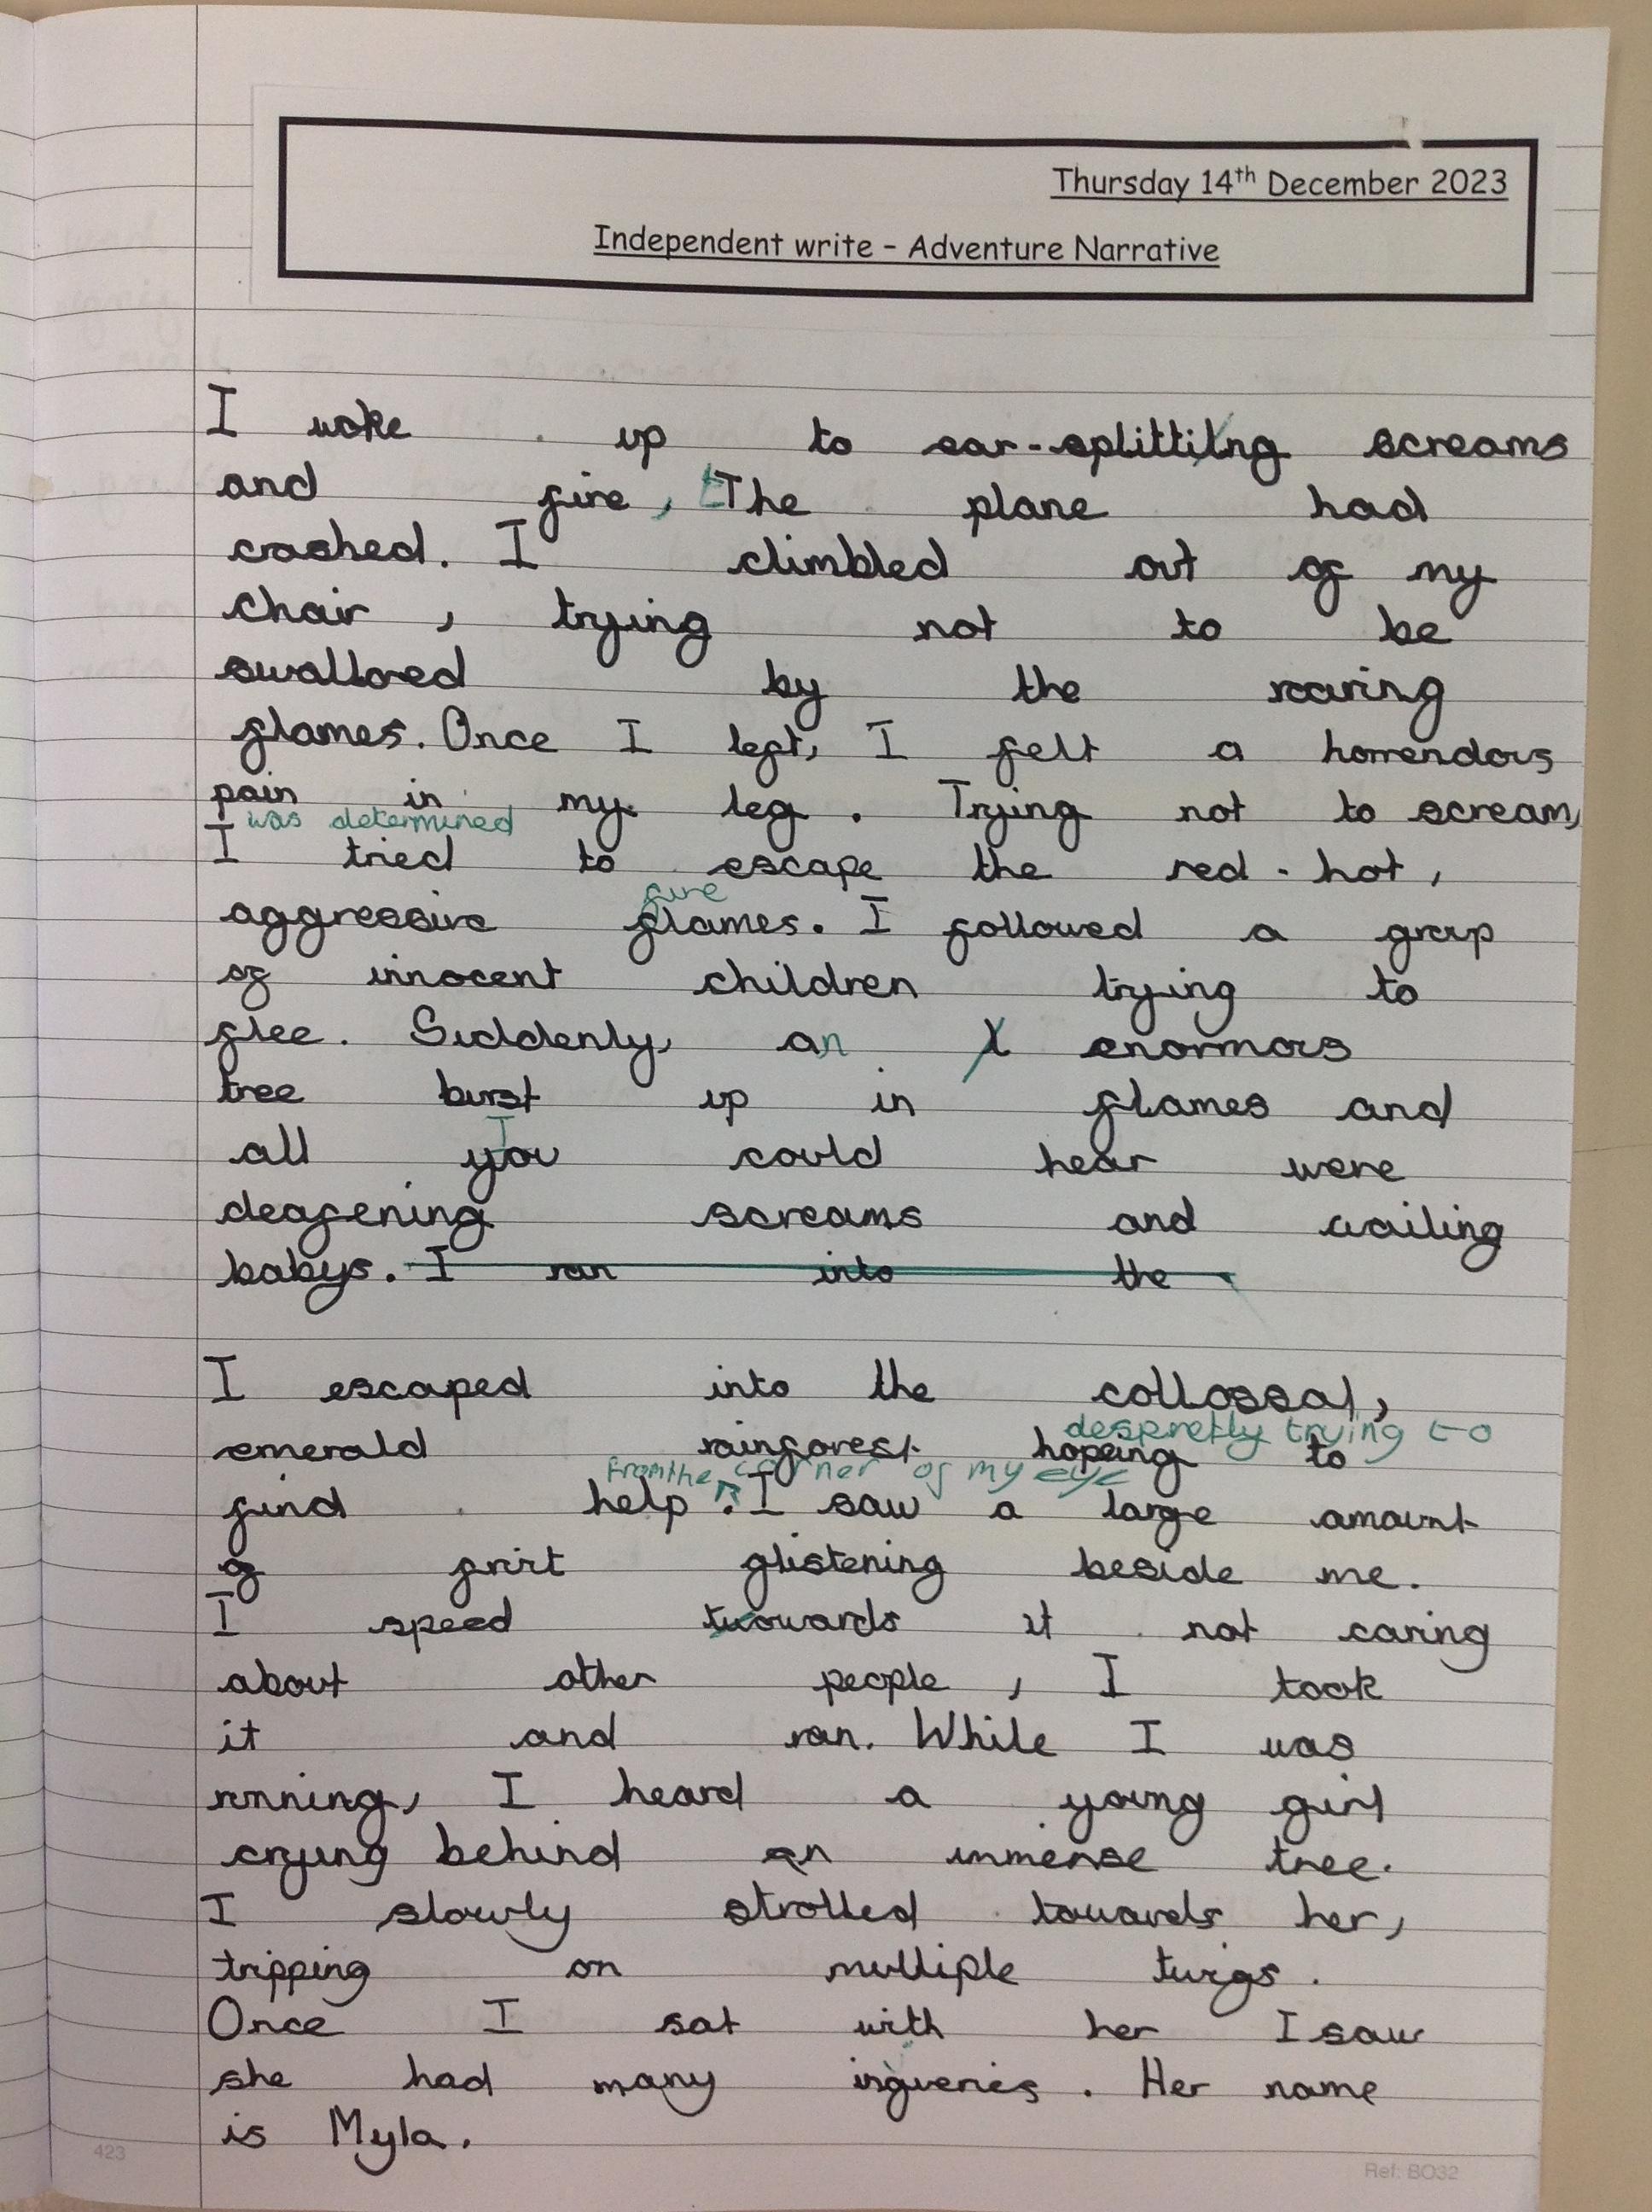 Thursday 14th December 2023
Independent write – Adventure Narrative
I woke up to ear-splitting screams
and fire, The plane had
crashed. I climbled out of my
chair, trying not to be
swallored by the roaring
flames. Once I left, I felt a horrendous
pain in my leg. Trying not to scream,
was determined
I tried to escape the red-hot,
fire
aggressive flames. I followed a group
of innocent children trying to
flee. Suddenly, an enormous
tree burst up in flames and
I
all you could hear were
deafening screams and wailing
babys. I ran into the
I escaped into the collossal,
despretly trying to
emerald rainforest hopeing to
From the corner of my eye
find help. I saw a large amount
of friut glistening beside me.
I speed towards it not caring
about other people, I took
it and ran. While I was
running, I heard a young girl
crying behind an immense tree.
I slowly strolled towards her,
tripping on multiple twigs.
Once I sat with her I saw
she had many ingueries. Her name
is Myla.
423
Ref: BO32